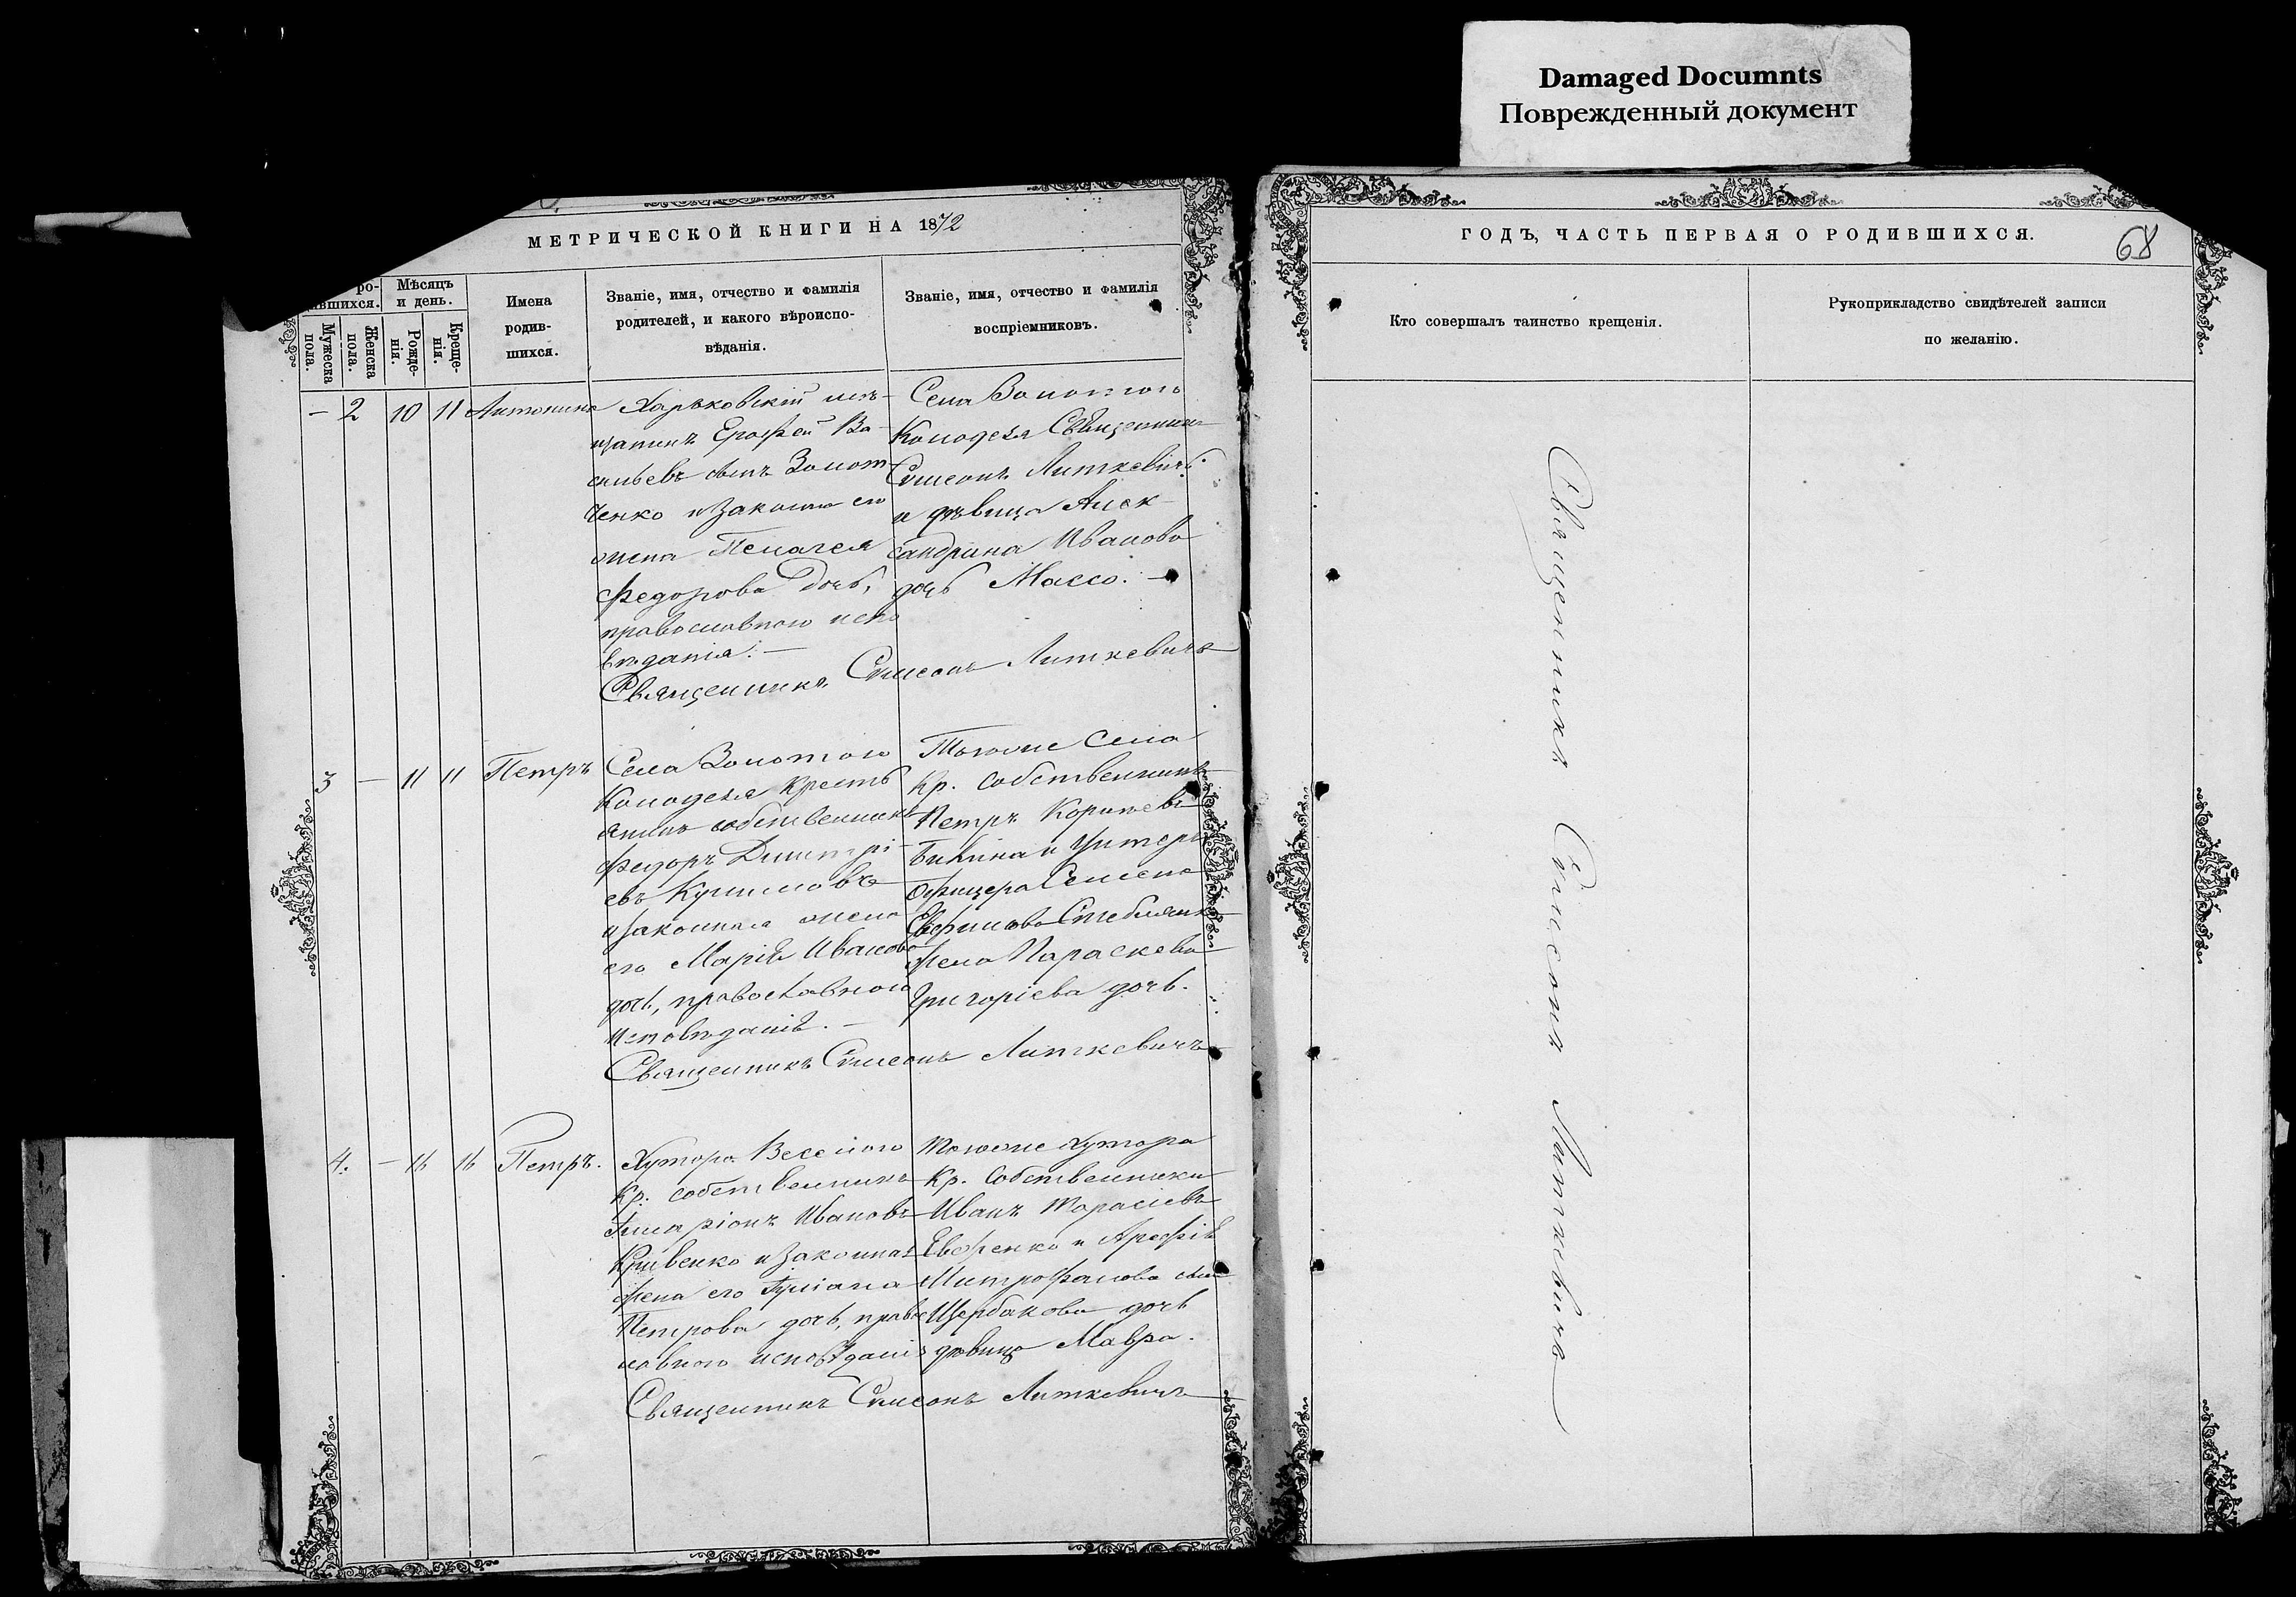 Damaged Documnts
Поврежденный документ
МЕТРИЧЕСКОЙ КНИГИ НА 1872
ГОДЪ, ЧАСТЬ ПЕРВАЯ О РОДИВШИХСЯ.
68
ро-
вшихся.
Мужеска пола.
Женска пола.
Мѣсяцъ
и день.
Рожде-
нія.
Креще-
нія.
Имена
родив-
шихся.
Званіе, имя, отчество и фамилія
родителей, и какого вѣроиспо-
вѣданія.
Званіе, имя, отчество и фамилія
воспріемниковъ.
Кто совершалъ таинство крещенія.
Рукоприкладство свидѣтелей записи
по желанію.
— 2 10 11 Антонина
Харьковскій мѣ-
щанинъ Ерофей Ва-
сильевъ сынъ Золот-
ченко и законная его
жена Пелагея
Федорова дочь,
православнаго испо
вѣданія. —
Села Золотого
Колодезя Священникъ
Симеонъ Литкевичъ
и дѣвица Алек-
сандрина Иванова
дочь Массо. —
Священникъ Симеонъ Литкевичъ
3 — 11 11 Петръ
Села Золотого
Колодезя Кресть
янинъ собственникъ
Федоръ Димитрі-
евъ
и законная жена
его Марія Иванова
дочь, православнаго
исповѣданія. —
Тогоже села
Кр. собственникъ
Петръ
и Унтеръ
офицера Семена
жена Параскева
Григоріева дочь.
Священникъ Симеонъ Литкевичъ
4. — 16 16 Петръ.
Хутора Веселого
Кр. собственникъ
Иларіонъ Ивановъ
Кривенко и законная
жена его Іуліана
Петрова дочь, правос
лавнаго исповѣданія
Тогоже хутора
Кр. собственники
Иванъ Тарасіевъ
Евфенко и
Митрофанова
Щербакова дочь
дѣвица Мавра.
Священникъ Симеонъ Литкевичъ
Священникъ Симеонъ Литкевичъ